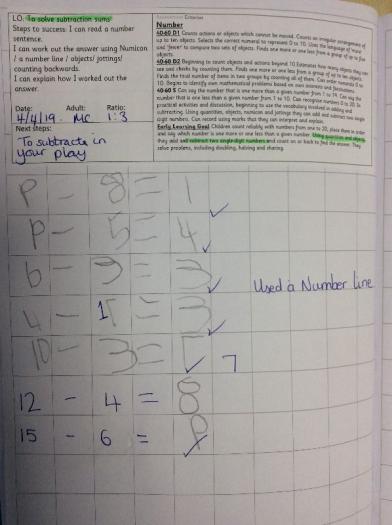 LO: To solve subtraction sums
Steps to success: I can read a number
sentence.
I can work out the answer using Numicon
/ a number line / objects/ jottings/
counting backwards.
I can explain how I worked out the
answer.
Date: Adult: Ratio:
4/4/19. MC 1:3
Next steps:
To subtracts in
your play
Criterion
Number
40-60 D1 Counts actions or objects which cannot be moved. Counts an irregular arrangement of
up to ten objects. Selects the correct numeral to represent 0 to 10. Uses the language of 'more'
and 'fewer' to compare two sets of objects. Finds one more or one less from a group of up to five
objects.
40-60 D2 Beginning to count objects and actions beyond 10. Estimates how many objects they can
see and checks by counting them. Finds one more or one less from a group of up to ten objects.
Finds the total number of items in two groups by counting all of them. Can order numerals 0 to
10. Begins to identify own mathematical problems based on own interests and fascinations.
40-60 S Can say the number that is one more than a given number from 1 to 19. Can say the
number that is one less than a given number from 1 to 10. Can recognise numerals 0 to 20. In
practical activities and discussion, beginning to use the vocabulary involved in adding and
subtracting. Using quantities, objects, numicon and jottings they can add and subtract two single
digit numbers. Can record using marks that they can interpret and explain.
Early Learning Goal Children count reliably with numbers from one to 20, place them in order
and say which number is one more or one less than a given number. Using quantities and objects,
they add and subtract two single-digit numbers and count on or back to find the answer. They
solve problems, including doubling, halving and sharing.
9 - 8 = 1 ✓
9 - 5 = 4 ✓
6 - 3 = 3 ✓
Used a Number line
4 - 1 = 3 ✓
10 - 3 = 7 ✓ 7
12 - 4 = 8
15 - 6 = 9 ✓